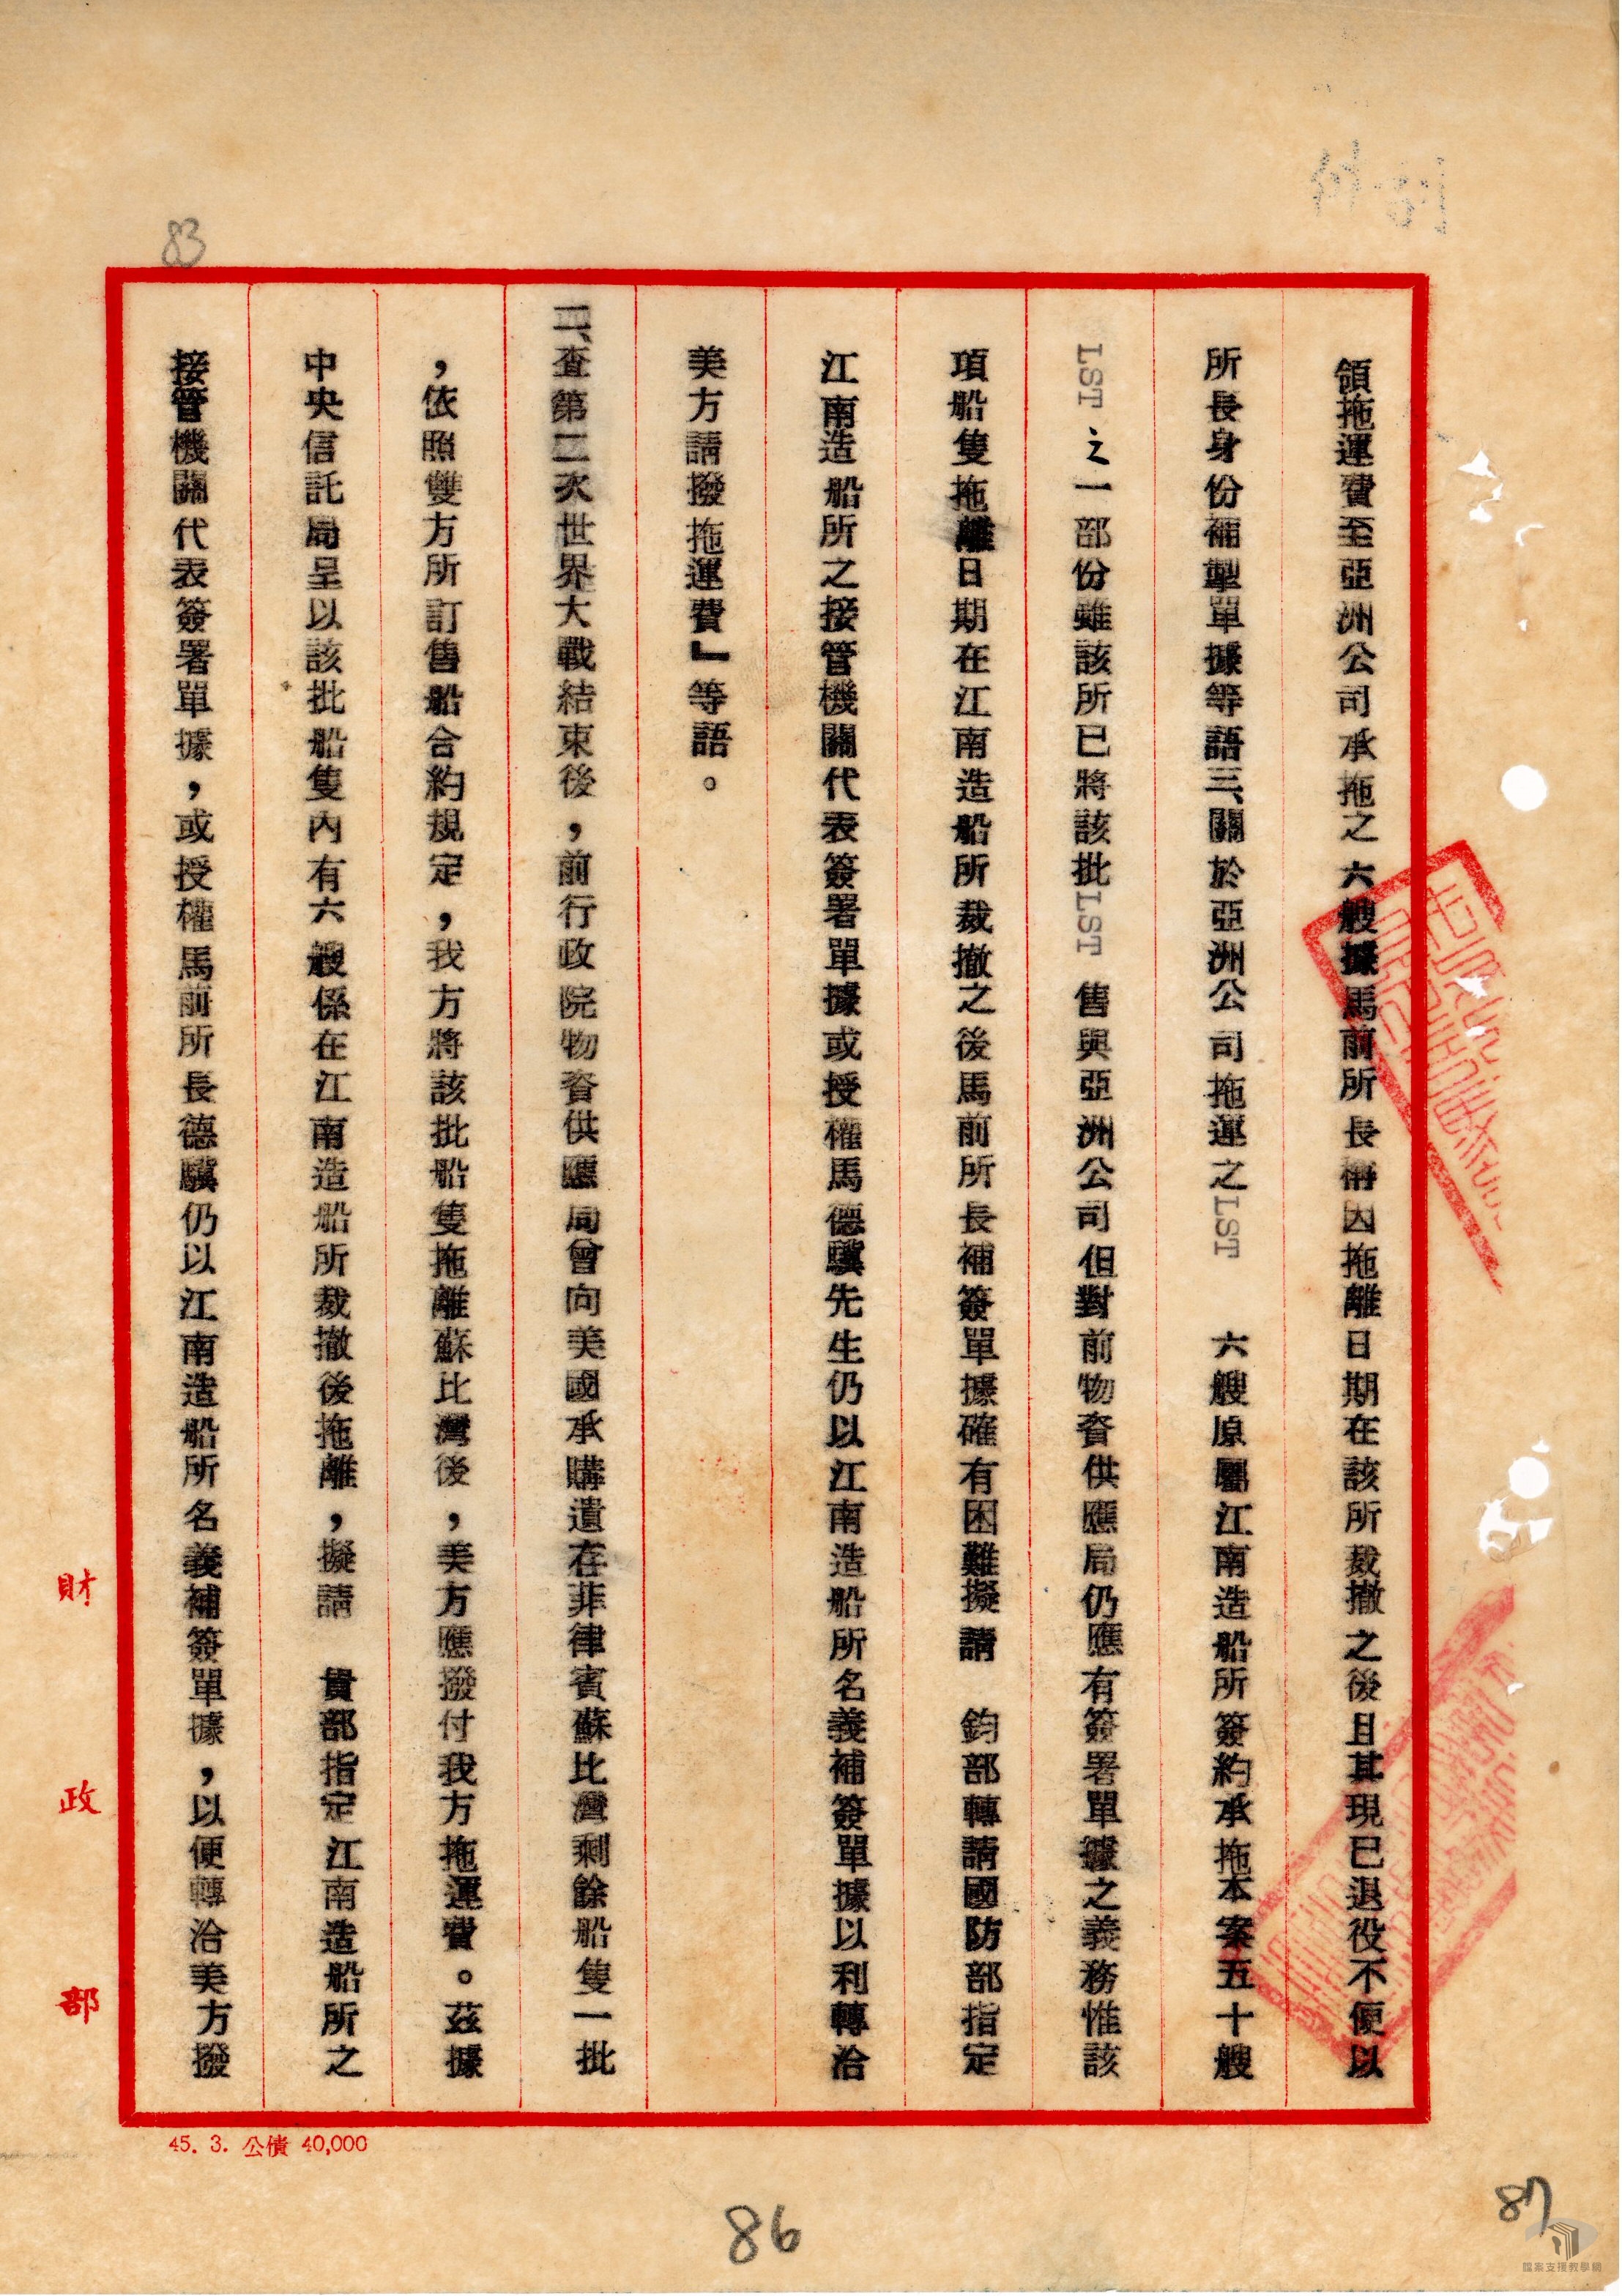 83
領拖運費至亞洲公司承拖之六艘據馬前所長稱因拖離日期在該所裁撤之後且其現已退役不便以
所長身份補掣單據等語三、關於亞洲公司拖運之LST 六艘原屬江南造船所簽約承拖本案五十艘
LST之一部份雖該所已將該批LST售與亞洲公司但對前物資供應局仍應有簽署單據之義務惟該
項船隻拖離日期在江南造船所裁撤之後馬前所長補簽單據確有困難擬請 鈞部轉請國防部指定
江南造船所之接管機關代表簽署單據或授權馬德驥先生仍以江南造船所名義補簽單據以利轉洽
美方請撥拖運費』等語。
二、查第二次世界大戰結束後，前行政院物資供應局曾向美國承購遺存菲律賓蘇比灣剩餘船隻一批
，依照雙方所訂售船合約規定，我方將該批船隻拖離蘇比灣後，美方應撥付我方拖運費。茲據
中央信託局呈以該批船隻內有六艘係在江南造船所裁撤後拖離，擬請 貴部指定江南造船所之
接管機關代表簽署單據，或授權馬前所長德驥仍以江南造船所名義補簽單據，以便轉洽美方撥
財政部
45. 3. 公債 40,000
86
87
檔案支援教學網